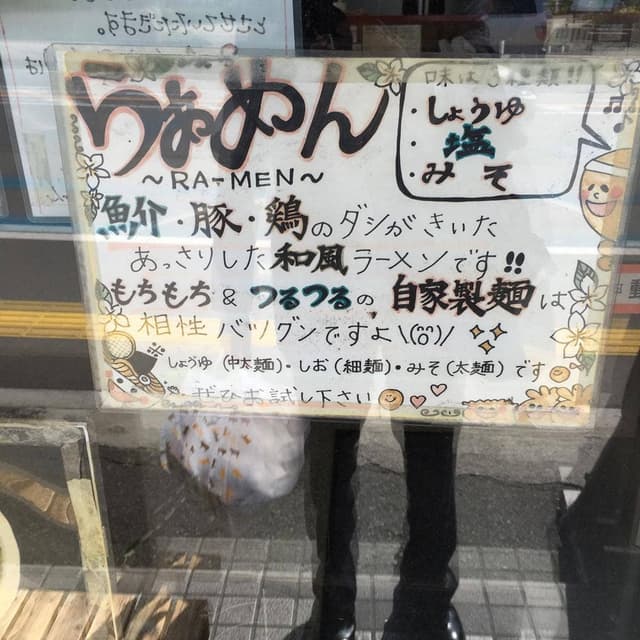 とさせていただきます。
らぁめん
～RA-MEN～
味は
種類!!
・しょうゆ
・塩
・みそ
魚介・豚・鶏のダシがきいた
あっさりした和風ラーメンです!!
もちもち&つるつるの自家製麺は
相性バツグンですよ
しょうゆ(中太麺)・しお(細麺)・みそ(太麺)です
ぜひお試し下さい